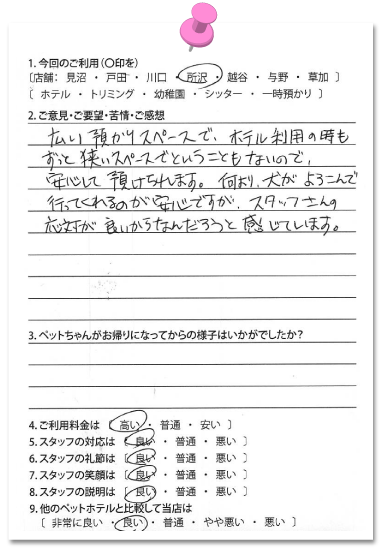 1. 今回のご利用(〇印を)
〔店舗： 見沼 ・ 戸田 ・ 川口 ・ 所沢 ・ 越谷 ・ 与野 ・ 草加 〕
〔 ホテル ・ トリミング ・ 幼稚園 ・ シッター ・ 一時預かり 〕
2. ご意見・ご要望・苦情・ご感想
広い預かりスペースで、ホテル利用の時も
ずっと狭いスペースでということもないので、
安心して預けられます。何より、犬がよろこんで
行ってくれるのが安心ですが、スタッフさんの
応対が良いからなんだろうと感じています。
3. ペットちゃんがお帰りになってからの様子はいかがでしたか？
4. ご利用料金は 〔 高い ・ 普通 ・ 安い 〕
5. スタッフの対応は 〔 良い ・ 普通 ・ 悪い 〕
6. スタッフの礼節は 〔 良い ・ 普通 ・ 悪い 〕
7. スタッフの笑顔は 〔 良い ・ 普通 ・ 悪い 〕
8. スタッフの説明は 〔 良い ・ 普通 ・ 悪い 〕
9. 他のペットホテルと比較して当店は
〔 非常に良い ・ 良い ・ 普通 ・ やや悪い ・ 悪い 〕